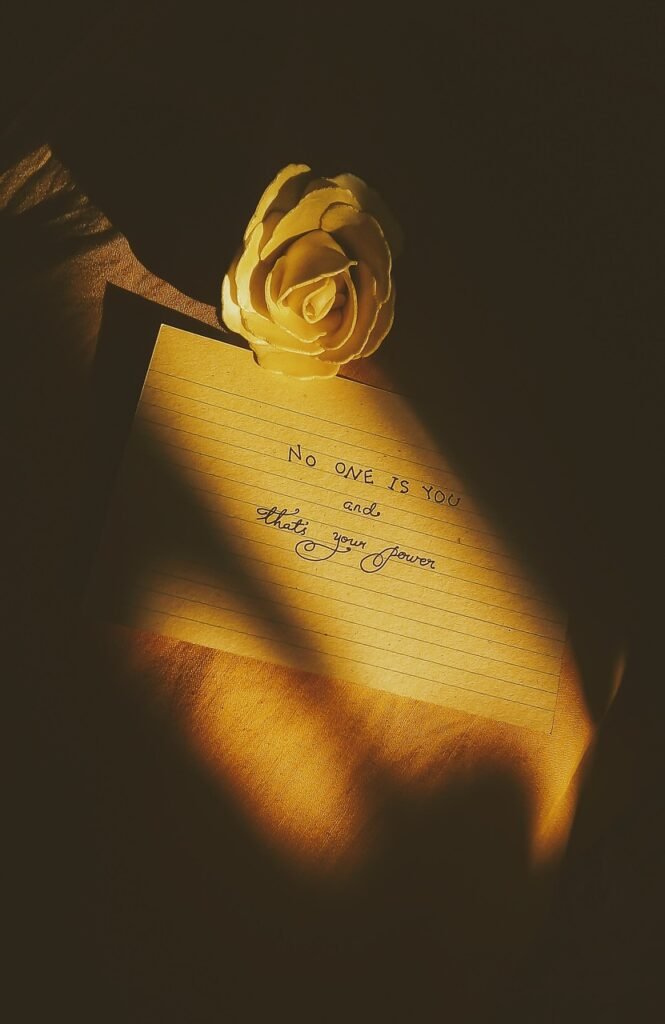 No ONE IS YOU
and
that's your power